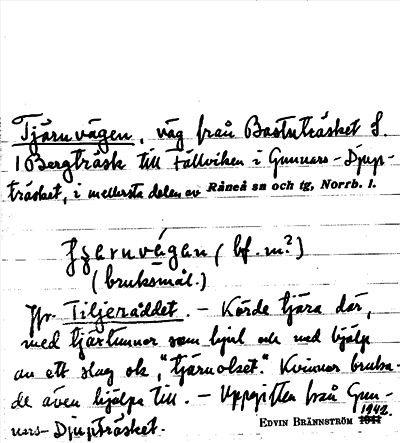 Tjärnvägen, väg från Bastuträsket S.
i Bergträsk till Hällviken i Gunnars-Djup-
träsket, i mellersta delen av Råneå sn och tg, Norrb. l.
(bf. m?)
(bruksmål.)
Jfr. Tiljeråddet. – Körde tjära där,
med tjärtunnor som hjul och med hjälp
av ett slag ok, "tjärnolset". Kvinnor bruka-
de även hjälpa till. – Uppgiften från Gun-
nars-Djupträsket.
EDVIN BRÄNNSTRÖM 1942.